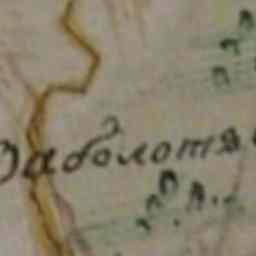 Заболотя